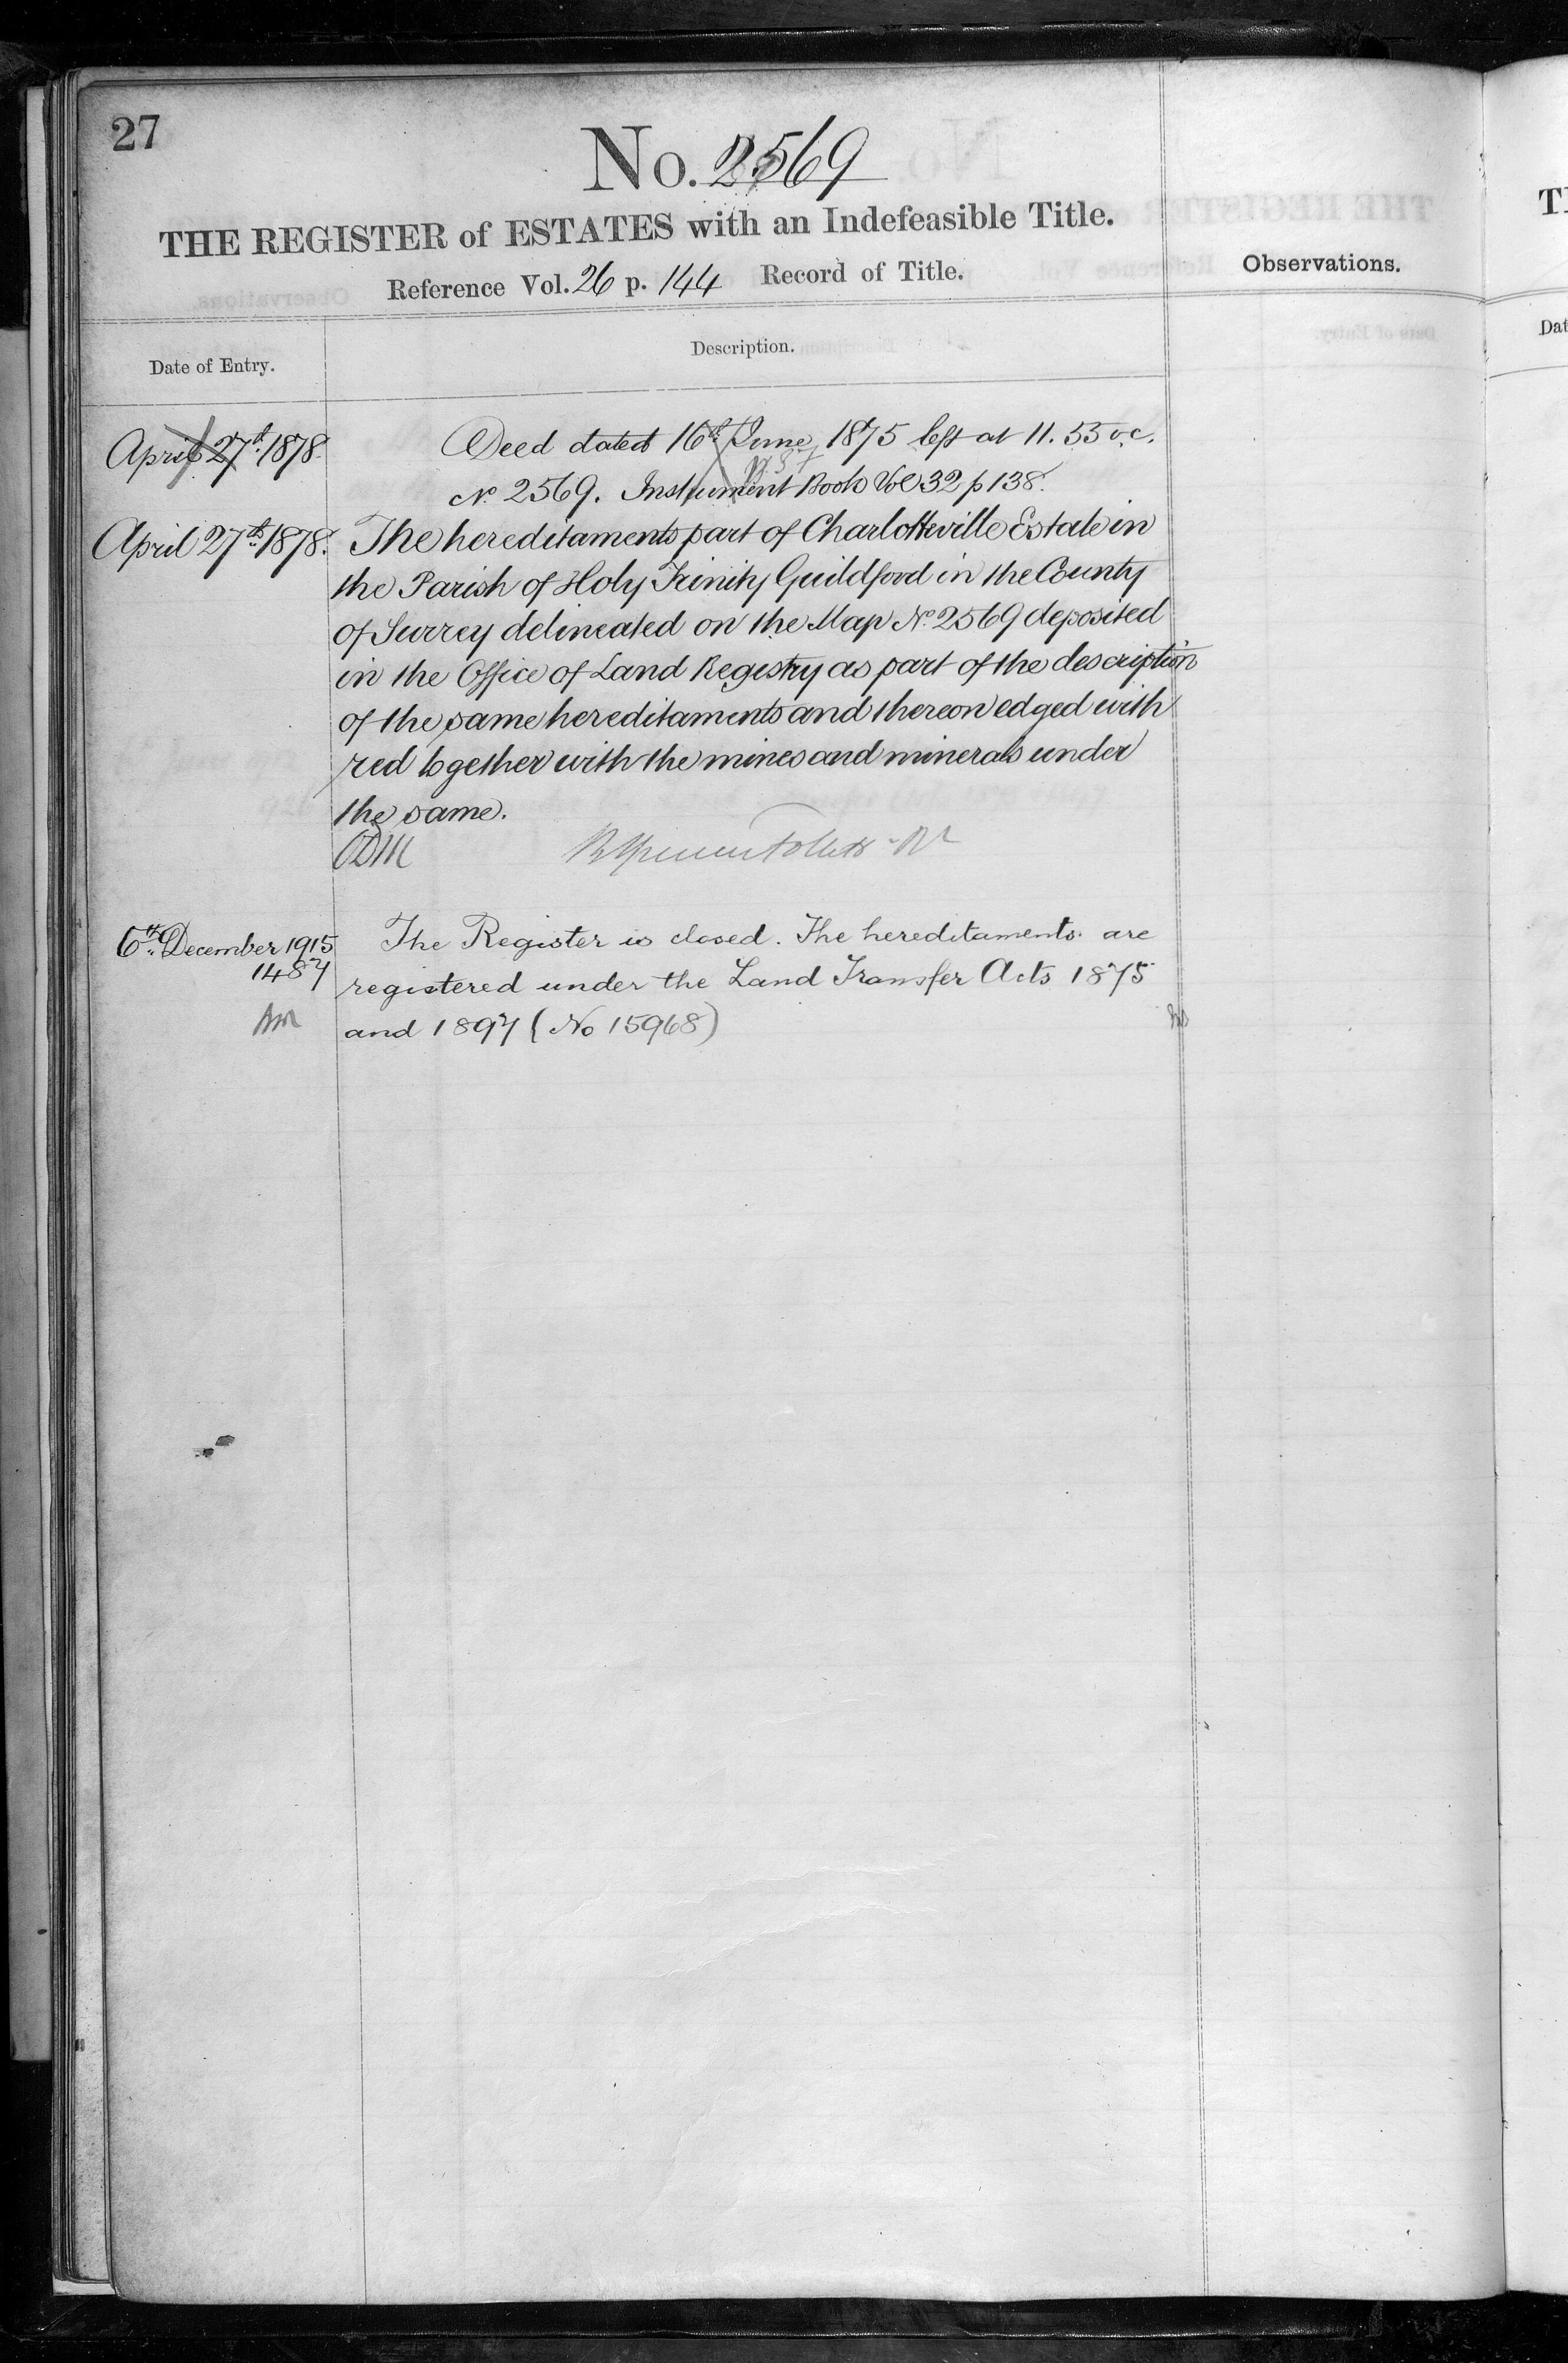 27
No. 2569
THE REGISTER of ESTATES with an Indefeasible Title.
Reference Vol. 26 p. 144 Record of Title.
Observations.
Date of Entry.
Description.
April 27th 1878. Deed dated 16th June 1875 left at 11.53 o.c.
No 2569. Instrument Book Vol 32 p 138.
April 27th 1878. The hereditaments part of Charlotteville Estate in
the Parish of Holy Trinity Guildford in the County
of Surrey delineated on the Map No. 2569 deposited
in the Office of Land Registry as part of the description
of the same hereditaments and thereon edged with
red together with the mines and minerals under
the same.
6th December 1915 The Register is closed. The hereditaments are
1487 registered under the Land Transfer Acts 1875
and 1897 (No 15968)
T
Dat